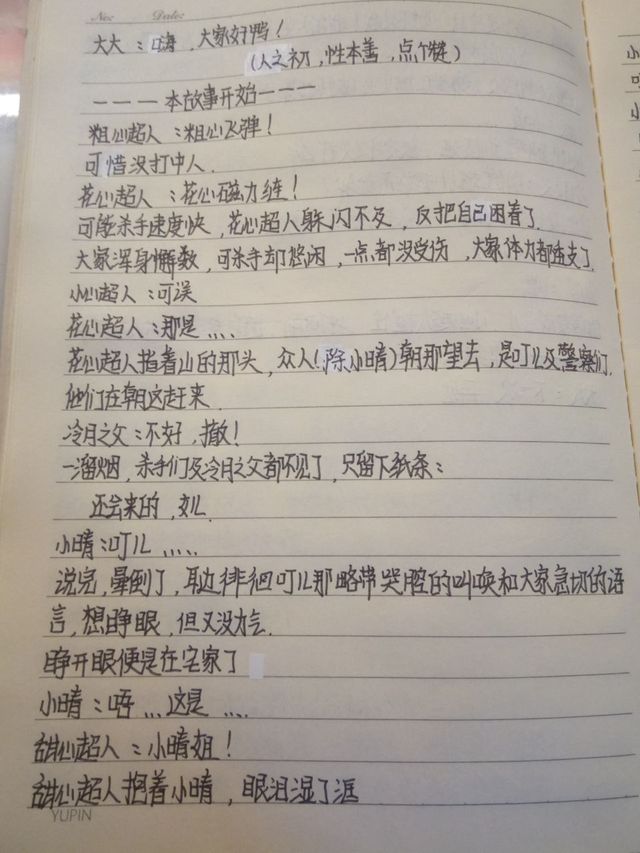 No: Date:
大大：嗨，大家好鸭！
（人之初，性本善，点个赞）
————本故事开始————
粗心超人：粗心飞弹！
可惜没打中人.
花心超人：花心磁力链！
可能杀手速度快，花心超人躲闪不及，反把自己困着了.
大家浑身懈数，可杀手却悠闲，一点都没受伤，大家体力都透支了.
小心超人：可误
花心超人：那是....
花心超人指着山的那头，众人(除小晴)朝那望去，是叮儿及警察们.
他们在朝这赶来.
冷月之父：不好，撤！
一溜烟，杀手们及冷月之父都不见了，只留下纸条：
还会来的，
小晴：叮儿.....
说完，晕倒了，耳边徘徊叮儿那略带哭腔的叫唤和大家急切的语
言，想睁眼，但又没力气.
睁开眼便是在宅家了
小晴：唔...这是....
甜心超人：小晴姐！
甜心超人抱着小晴，眼泪湿了涯
YUPIN